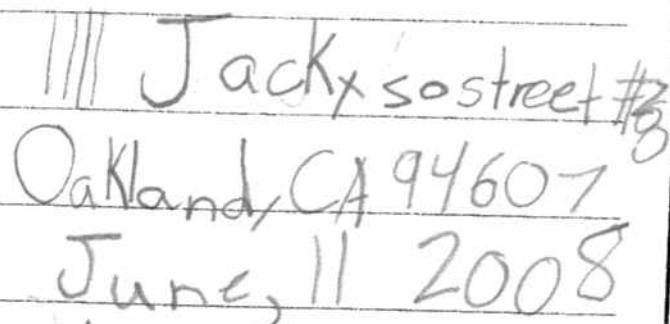 1111 Jackxsostreet #
Oakland, CA 94607
June, 11 2008